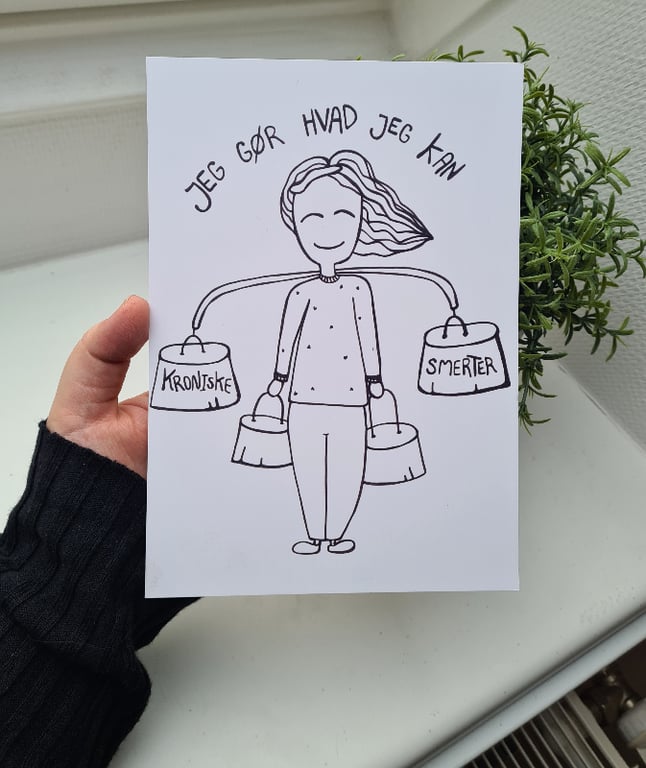 JEG GØR HVAD JEG KAN
KRONISKE
SMERTER